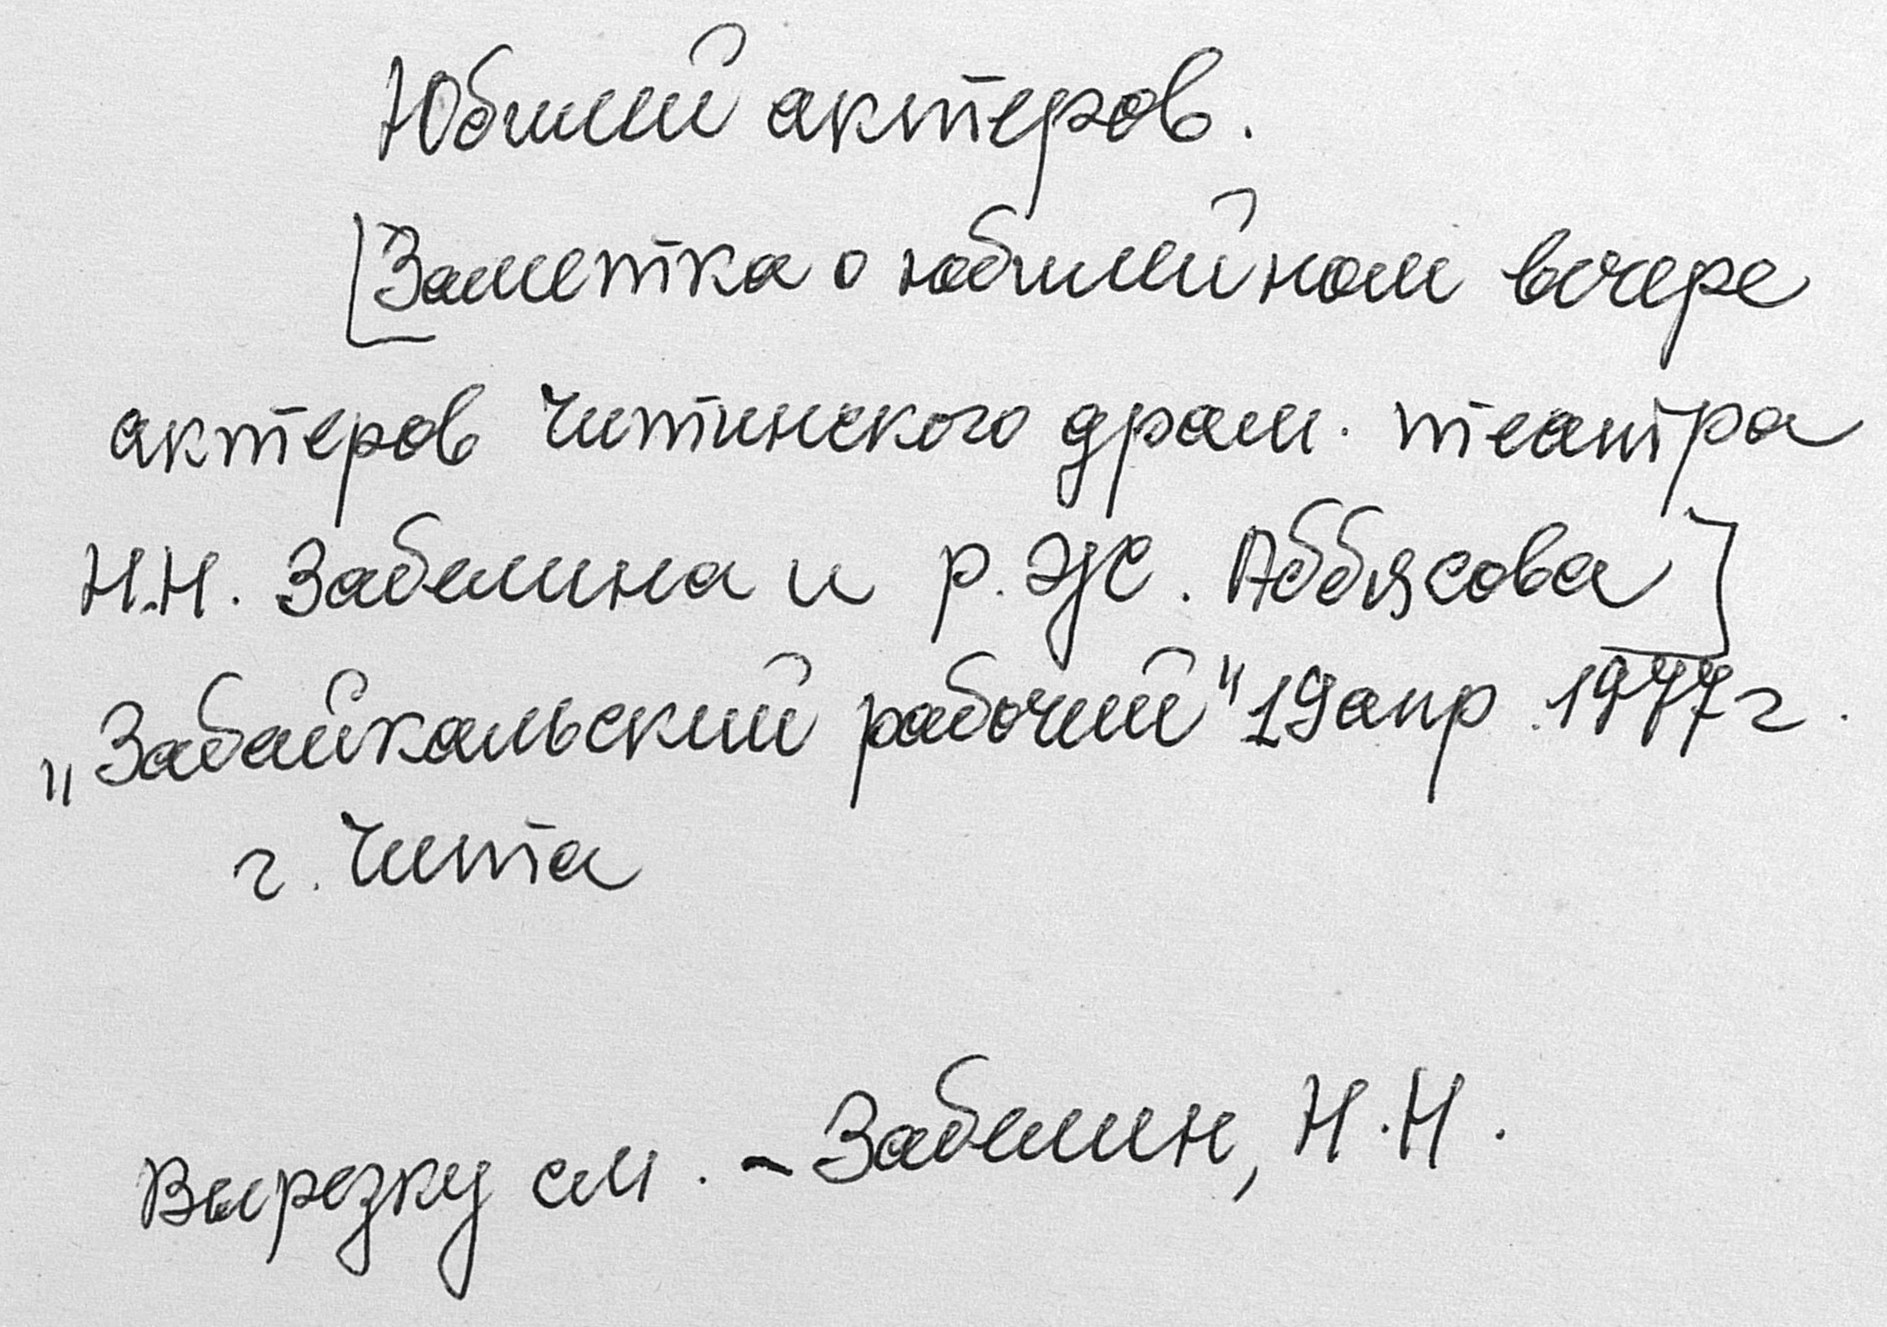 Юбилей актеров.
[Заметка о юбилейном вечере
актеров Читинского драм. театра
Н.Н. Забелина и Р.Ж. Аббясова]
„Забайкальский рабочий" 19 апр. 1977 г.
г. Чита
Вырезку см. - Забелин, Н.Н.